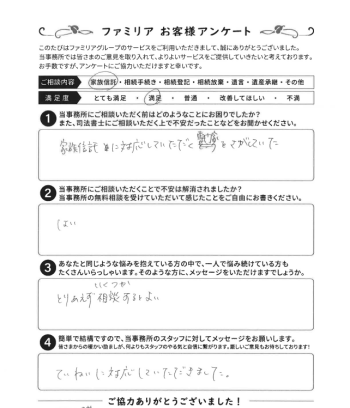 ファミリア お客様アンケート
このたびはファミリアグループのサービスをご利用いただきまして、誠にありがとうございました。
当事務所では皆さまのご意見を取り入れて、よりよいサービスをご提供していきたいと考えております。
お手数ですが、アンケートにご協力いただけますと幸いです。
ご相談内容 家族信託・相続手続き・相続登記・相続放棄・遺言・遺産承継・その他
満足度 とても満足 ・ 満足 ・ 普通 ・ 改善してほしい ・ 不満
1 当事務所にご相談いただく前はどのようなことにお困りでしたか?
また、司法書士にご相談いただく上で不安だったことなどをお聞かせください。
家族信託に対応していただく をさがしていた
2 当事務所にご相談いただくことで不安は解消されましたか?
当事務所の無料相談を受けていただいて感じたことをご自由にお書きください。
はい
3 あなたと同じような悩みを抱えている方の中で、一人で悩み続けている方も
たくさんいらっしゃいます。そのような方に、メッセージをいただけますでしょうか。
いくつか
とりあえず相談するとよい
4 簡単で結構ですので、当事務所のスタッフに対してメッセージをお願いします。
皆さまからの暖かい励ましが、何よりもスタッフのやる気と自信に繋がります。厳しいご意見もお待ちしております!
ていねいに対応していただきました。
ご協力ありがとうございました!